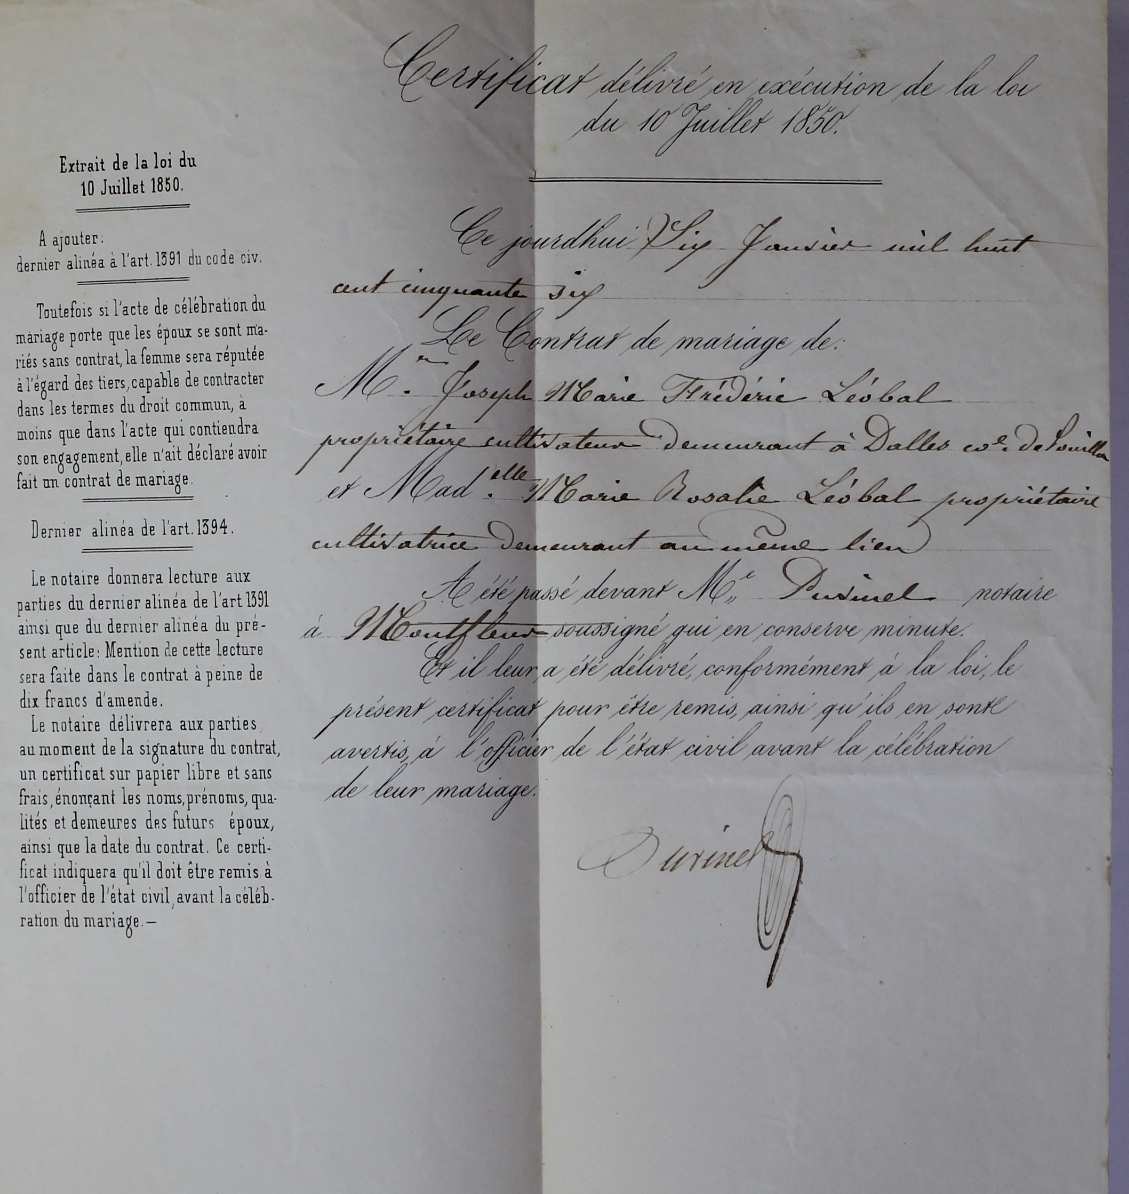 Extrait de la loi du
10 Juillet 1850.
A ajouter.
dernier alinéa à l'art. 1391 du code civ.
Toutefois si l'acte de célébration du
mariage porte que les époux se sont ma-
riés sans contrat, la femme sera réputée
à l'égard des tiers, capable de contracter
dans les termes du droit commun, à
moins que dans l'acte qui contiendra
son engagement, elle n'ait déclaré avoir
fait un contrat de mariage.
Dernier alinéa de l'art. 1394.
Le notaire donnera lecture aux
parties du dernier alinéa de l'art 1391
ainsi que du dernier alinéa du pré-
sent article: Mention de cette lecture
sera faite dans le contrat à peine de
dix francs d'amende.
Le notaire délivrera aux parties
au moment de la signature du contrat,
un certificat sur papier libre et sans
frais, énonçant les noms, prénoms, qua-
lités et demeures des futurs époux,
ainsi que la date du contrat. Ce certi-
ficat indiquera qu'il doit être remis à
l'officier de l'état civil, avant la céléb-
ration du mariage.—
Certificat délivré en exécution de la loi
du 10 Juillet 1850.
Ce jourdhui Six Janvier mil huit
cent cinquante six
Le Contrat de mariage de:
M. Joseph Marie Frédéric Léobal
propriétaire cultivateur demeurant à Dalles co.e de
et Mad.elle Marie Rosalie Léobal propriétaire
cultivatrice demeurant au même lieu
A été passé devant M.e Puvinel notaire
à Montfleur soussigné qui en conserve minute.
Et il leur a été délivré, conformément à la loi, le
présent certificat pour être remis, ainsi qu'ils en sont
avertis, à l'officier de l'état civil avant la célébration
de leur mariage.
Puvinel